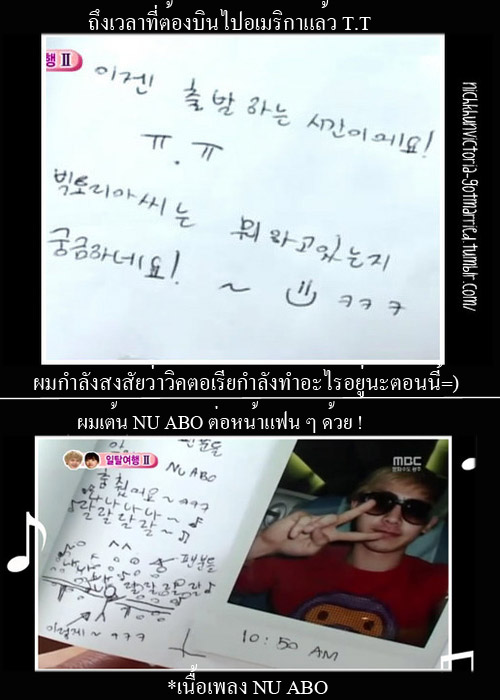 ถึงเวลาที่ต้องบินไปอเมริกาแล้ว T.T
행 II
이젠 출발하는 시간이에요!
ㅠ.ㅠ
빅토리아씨는 뭐하고있는지
궁금하네요! ~ ㅋㅋㅋ
nichkhunvictoria-gotmarried.tumblr.com/
ผมกำลังสงสัยว่าวิคตอเรียกำลังทำอะไรอยู่นะตอนนี้=)
ผมเต้น NU ABO ต่อหน้าแฟน ๆ ด้วย !
일탈여행 II
MBC
NU ABO
춤 췄어요~ ㅋㅋㅋ
나나나나~
랄랄랄랄~
팬분들
이렇게~ ㅋㅋㅋ
10:50 AM
*เนื้อเพลง NU ABO